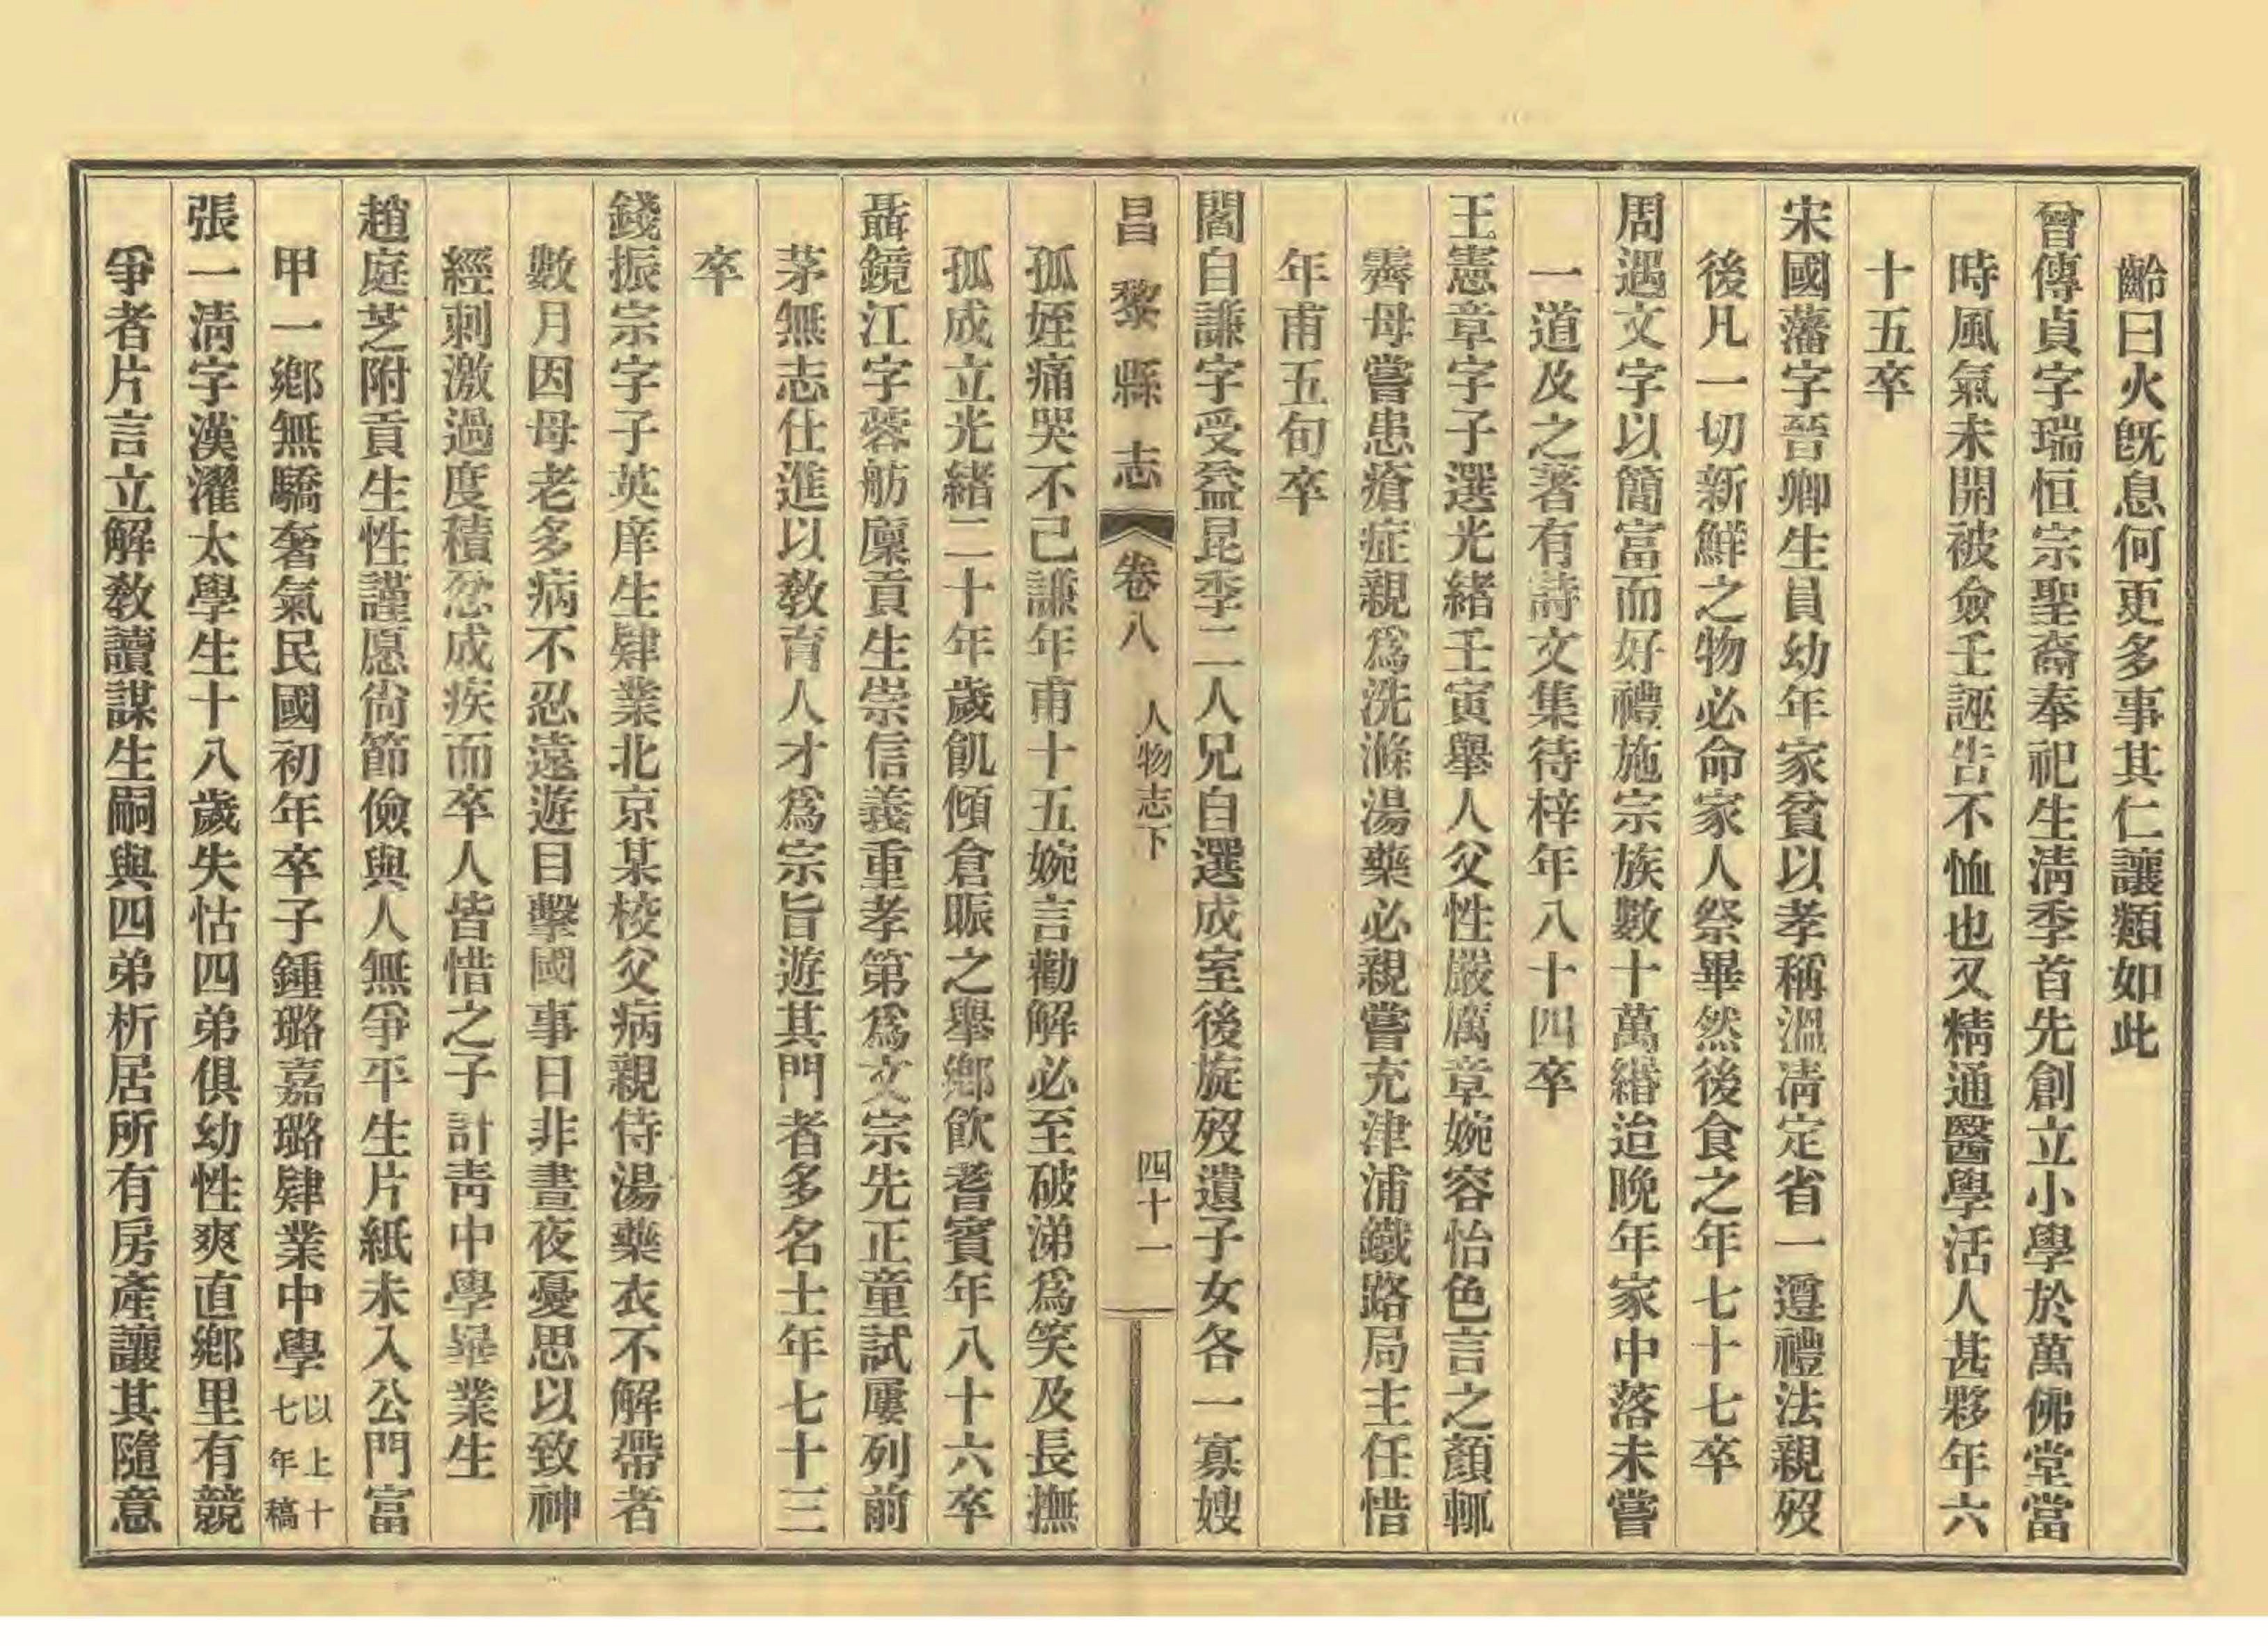 齡曰火旣息何更多事其仁讓類如此
曾傳貞字瑞恒宗聖裔奉祀生淸季首先創立小學於萬佛堂當
時風氣未開被僉壬誣吿不恤也又精通醫學活人甚夥年六
十五卒
宋國藩字晉卿生員幼年家貧以孝稱溫凊定省一遵禮法親歿
後凡一切新鮮之物必命家人祭畢然後食之年七十七卒
周遇文字以簡富而好禮施宗族數十萬緡迨晚年家中落未嘗
一道及之著有詩文集待梓年八十四卒
王憲章字子選光緒壬寅舉人父性嚴厲章婉容怡色言之顏輒
霽母嘗患瘡症親爲洗滌湯藥必親嘗充津浦鐵路局主任惜
年甫五旬卒
閻自謙字受益昆季二人兄自選成室後旋歿遺子女各一寡嫂
昌黎縣志 卷八 人物志下 四十一
孤姪痛哭不已謙年甫十五婉言勸解必至破涕爲笑及長撫
孤成立光緒二十年歲飢傾倉賑之舉鄉飮耆賓年八十六卒
聶鏡江字蓉舫廩貢生崇信義重孝第爲文宗先正童試屢列前
茅無志仕進以敎育人才爲宗旨遊其門者多名士年七十三
卒
錢振宗字子英庠生肄業北京某校父病親侍湯藥衣不解帶者
數月因母老多病不忍遠遊目擊國事日非晝夜憂思以致神
經刺激過度積忿成疾而卒人皆惜之子計靑中學畢業生
趙庭芝附貢生性謹愿尙節儉與人無爭平生片紙未入公門富
甲一鄉無驕奢氣民國初年卒子鍾璐嘉璐肄業中學以上十七年稿
張一淸字漢濯太學生十八歲失怙四弟俱幼性爽直鄉里有競
爭者片言立解敎讀謀生嗣與四弟析居所有房產讓其隨意